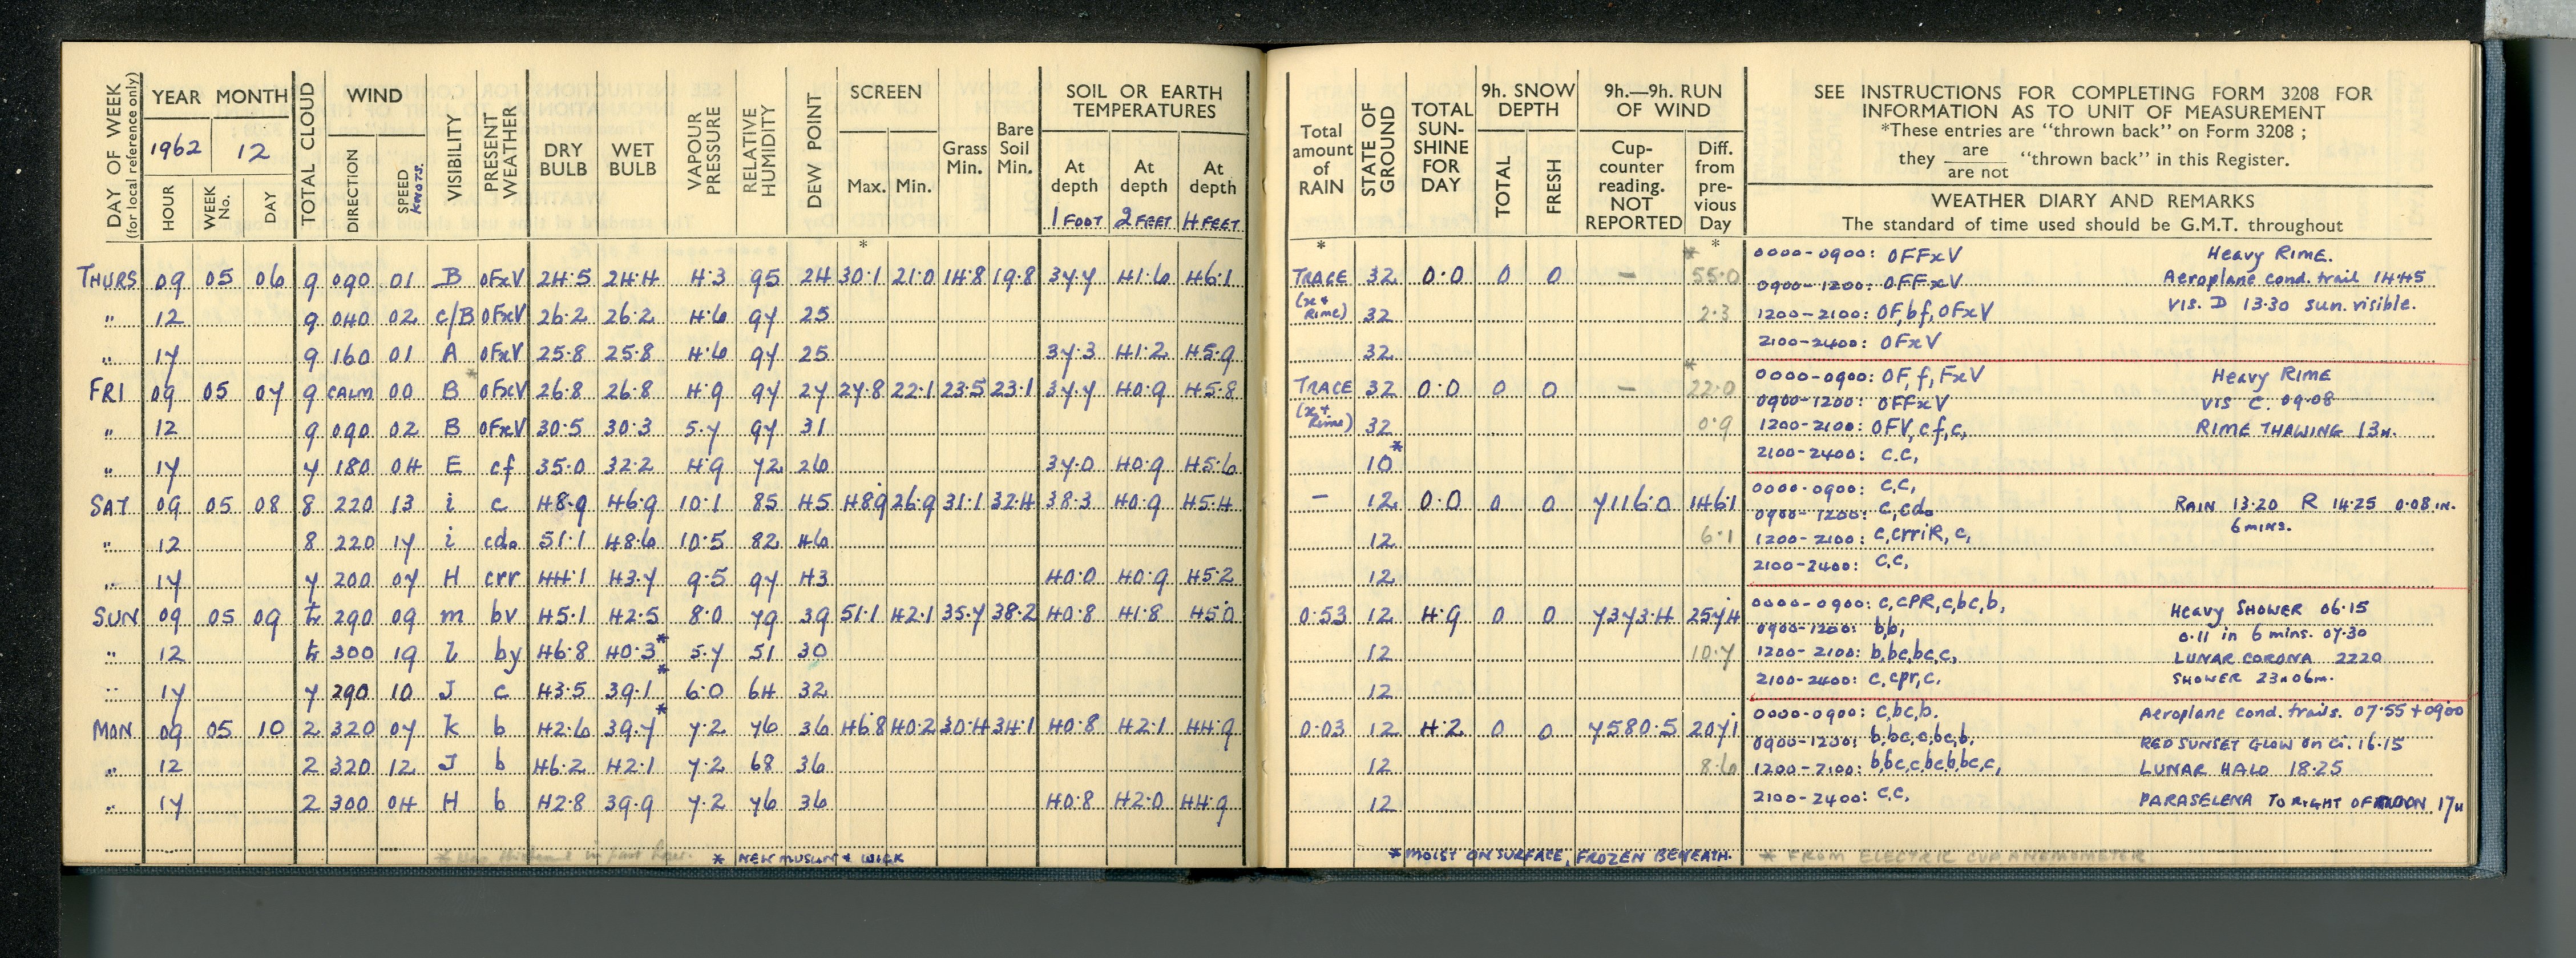 DAY OF WEEK (for local reference only) YEAR MONTH TOTAL CLOUD WIND VISIBILITY PRESENT WEATHER DRY BULB WET BULB VAPOUR PRESSURE RELATIVE HUMIDITY DEW POINT SCREEN Grass Min. Bare Soil Min. SOIL OR EARTH TEMPERATURES
1962 12
HOUR WEEK No. DAY DIRECTION SPEED KNOTS. Max. Min. At depth At depth At depth
1 FOOT 2 FEET 4 FEET
*
THURS 09 05 06 9 090 01 B OFxV 24.5 24.4 4.3 95 24 30.1 21.0 14.8 19.8 37.7 41.6 46.1
" 12 9 040 02 C/B OFxV 26.2 26.2 4.6 97 25
" 17 9 160 01 A OFxV 25.8 25.8 4.6 97 25 37.3 41.2 45.9
FRI 09 05 07 9 CALM 00 B* OFxV 26.8 26.8 4.9 97 27 27.8 22.1 23.5 23.1 37.7 40.9 45.8
" 12 9 090 02 B OFxV 30.5 30.3 5.7 97 31
" 17 7 180 04 E cf 35.0 32.2 4.9 72 26 37.0 40.9 45.6
SAT 09 05 08 8 220 13 i c 48.9 46.9 10.1 85 45 48.9 26.9 31.1 32.4 38.3 40.9 45.4
" 12 8 220 17 i cdo 51.1 48.6 10.5 82 46
" 17 7 200 07 H crr 44.1 43.7 9.5 97 43 40.0 40.9 45.2
SUN 09 05 09 tr 290 09 m bv 45.1 42.5 8.0 79 39 51.1 42.1 35.7 38.2 40.8 41.8 45.0
" 12 tr 300 19 l by 46.8 40.3* 5.7 51 30
" 17 7 290 10 J c 43.5 39.1* 6.0 64 32
MON 09 05 10 2 320 07 k b 42.6 39.7* 7.2 76 36 46.8 40.2 30.4 34.1 40.8 42.1 44.9
" 12 2 320 12 J b 46.2 42.1 7.2 68 36
" 17 2 300 04 H b 42.8 39.9 7.2 76 36 40.8 42.0 44.9
* in past hour. * NEW MUSLIN & WICK
Total amount of RAIN STATE OF GROUND TOTAL SUN-SHINE FOR DAY 9h. SNOW DEPTH 9h.—9h. RUN OF WIND
TOTAL FRESH Cup-counter reading. NOT REPORTED Diff. from pre-vious Day
SEE INSTRUCTIONS FOR COMPLETING FORM 3208 FOR
INFORMATION AS TO UNIT OF MEASUREMENT
*These entries are "thrown back" on Form 3208 ;
they are / are not "thrown back" in this Register.
WEATHER DIARY AND REMARKS
The standard of time used should be G.M.T. throughout
* *
TRACE 32 0.0 0 0 – 55.0* 0000-0900: OFFxV Heavy RIME.
(x + Rime) 32 2.3 0900-1200: OFFxV Aeroplane cond. trail 1445
1200-2100: OF,bf,OFxV VIS. D 13.30 sun. visible.
32 2100-2400: OFxV
TRACE 32 0.0 0 0 – 22.0* 0000-0900: OF,f,FxV Heavy RIME
(x + Rime) 32 0.9 0900-1200: OFFxV VIS C. 09.08
1200-2100: OFV,cf,c, RIME THAWING 13H.
10* 2100-2400: c.c,
– 12 0.0 0 0 7116.0 146.1 0000-0900: c,c,
0900-1200: c,cdo RAIN 13.20 R 14.25 0.08 IN.
12 6.1 1200-2100: c,crriR, c, 6 MINS.
12 2100-2400: c.c,
0.53 12 4.9 0 0 7373.4 257.4 0000-0900: c,cPR,c,bc,b, Heavy SHOWER 06.15
0900-1200: b,b, 0.11 in 6 mins. 07.30
12 10.7 1200-2100: b,bc,bc,c, LUNAR CORONA 2220
12 2100-2400: c,cpr,c. SHOWER 23H06m.
0.03 12 4.2 0 0 7580.5 207.1 0000-0900: c,bc,b. Aeroplane cond. trails. 07.55 + 0900
0900-1200: b,bc,c,bc,b. RED SUNSET GLOW on Ci. 16.15
12 8.6 1200-2100: b,bc,c,bc,b,bc,c, LUNAR HALO 18.25
12 2100-2400: c.c, PARASELENA TO RIGHT OF MOON 17H
* MOIST ON SURFACE, FROZEN BENEATH. * FROM ELECTRIC CUP ANEMOMETER